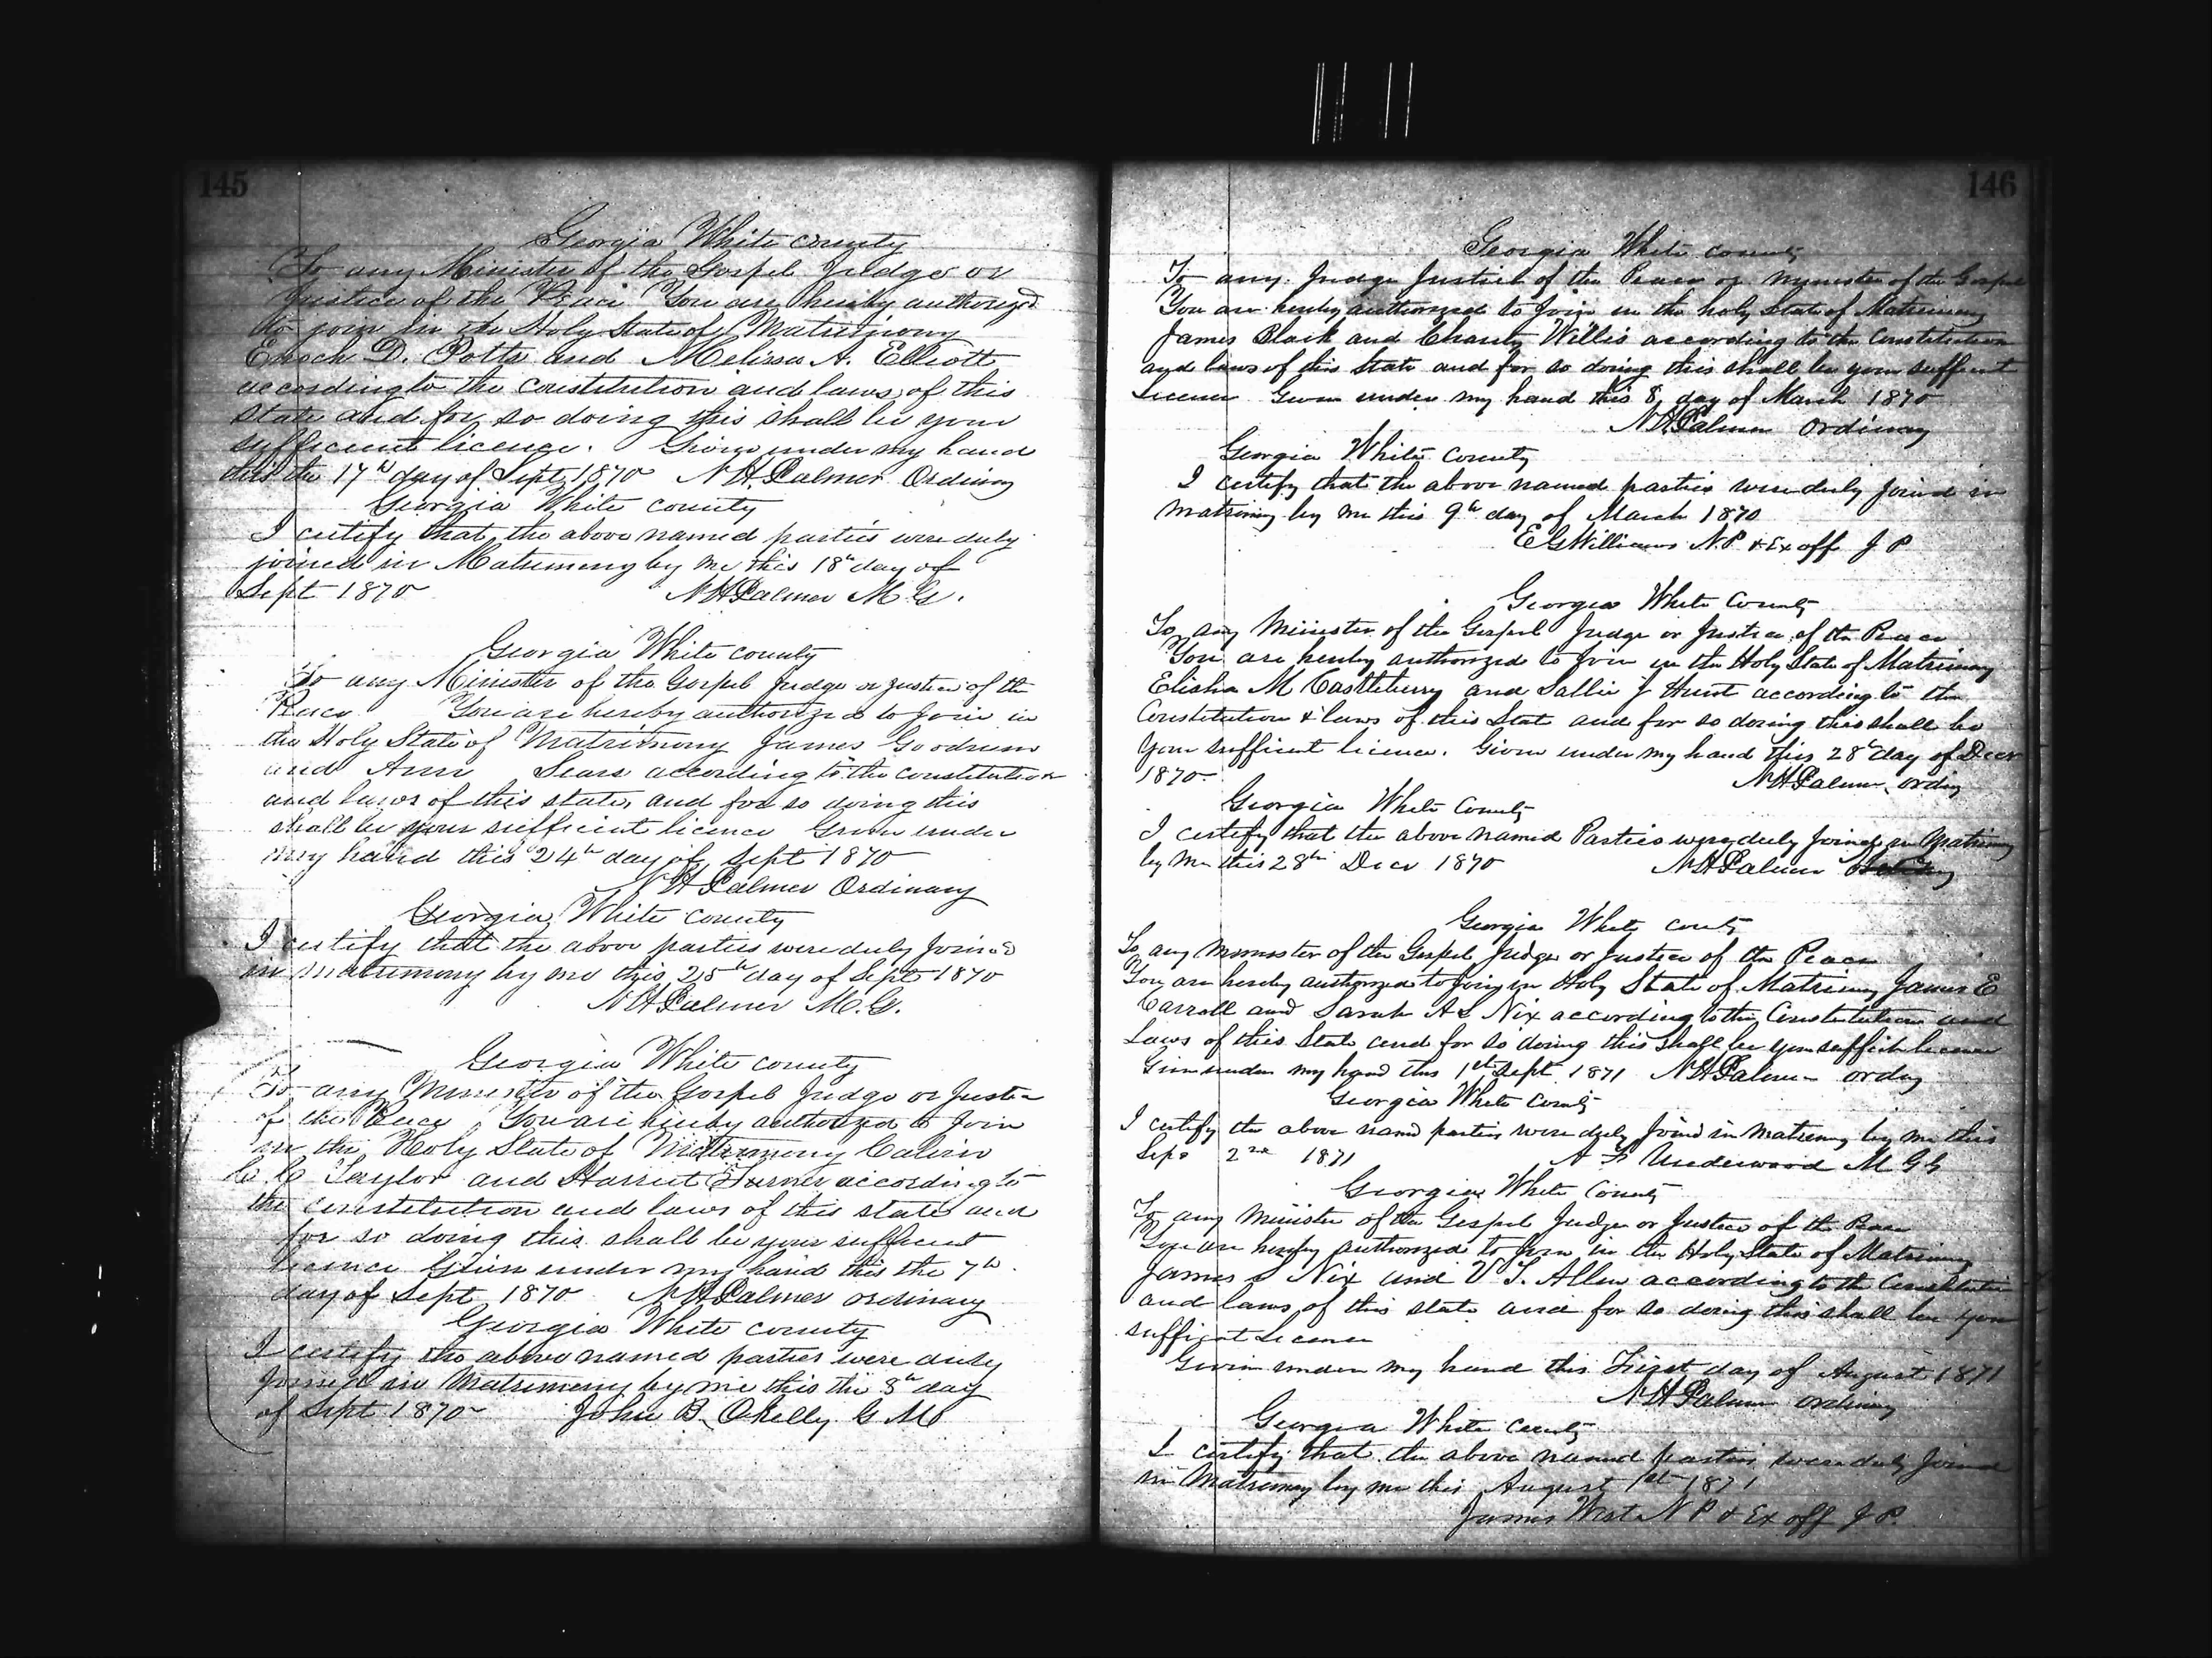 145
Georgia White county
To any Minister of the Gospel Judge or
Justice of the Peace You are hereby authorized
to join in the Holy State of Matrimony
Enoch D. Potts and Melissa A. Elliott
according to the constitution and laws of this
state and for so doing this shall be your
sufficient licence. Given under my hand
this the 17th day of Sept 1870 N H Palmer Ordinary
Georgia White county
I certify that the above named parties were duly
joined in Matrimony by me this 18th day of
Sept 1870 N H Palmer M. G.
Georgia White county
To any Minister of the Gospel Judge or Justice of the
Peace You are hereby authorized to join in
the Holy State of Matrimony James Goodrum
and Ann Sears according to the constitution
and laws of this state, and for so doing this
shall be your sufficient licence Given under
my hand this 24th day of Sept 1870
N H Palmer Ordinary
Georgia White county
I certify that the above parties were duly joined
in Matrimony by me this 25th day of Sept 1870
N H Palmer M. G.
Georgia White county
To any Minister of the Gospel Judge or Justice
of the Peace You are hereby authorized to Join
in the Holy State of Matrimony Calvin
C C Taylor and Harriet Turner according to
the constitution and laws of this state and
for so doing this shall be your sufficient
licence Given under my hand this the 7th
day of Sept 1870 N H Palmer ordinary
Georgia White county
I certify the above named parties were duly
joined in Matrimony by me this the 8th day
of Sept 1870 John B Okelly G M
146
Georgia White county
To any Judge Justice of the Peace or Minister of the Gospel
You are hereby authorized to Join in the holy State of Matrimony
James Black and Charity Willis according to the Constitution
and laws of this State and for so doing this shall be your suffient
Licence Given under my hand this 8, day of March 1870
N H Palmer Ordinary
Georgia White County
I certify that the above named parties were duly joined in
Matrimony by me this 9th day of March 1870
E G Williams N. P & Ex off J P
Georgia White County
To any Minister of the Gospel Judge or Justice of the Peace
You are hereby authorized to join in the Holy State of Matrimony
Elisha M Castleberry and Sallie J Hunt according to the
Constitution & laws of this State and for so doing this shall be
your sufficient licence. Given under my hand this 28th day of Decr
1870 N H Palmer ordny
Georgia White County
I certify that the above named Parties were duly joined in Matrimony
by me this 28th Decr 1870 N H Palmer
Georgia White County
To any Minister of the Gospel Judge or Justice of the Peace
You are hereby authorized to join in Holy State of Matrimony James E
Carroll and Sarah A L Nix according to the Constitution and
Laws of this State and for so doing this shall be your suffict licence
Given under my hand this 1st Sept 1871 N H Palmer ordny
Georgia White County
I certify the above named parties were duly joined in Matrimony by me this
Sep 2nd 1871 Underwood M G
Georgia White County
To any Minister of the Gospel Judge or Justice of the Peace
You are hereby authorized to join in the Holy State of Matrimony
James Nix and V T. Allen according to the Constitution
and laws of this state and for so doing this shall be your
sufficient Licence
Given under my hand this First day of August 1871
N H Palmer ordinary
Georgia White County
I certify that the above named parties were duly Joined
in Matrimony by me this August 1st 1871
James West N P & Ex off J P.